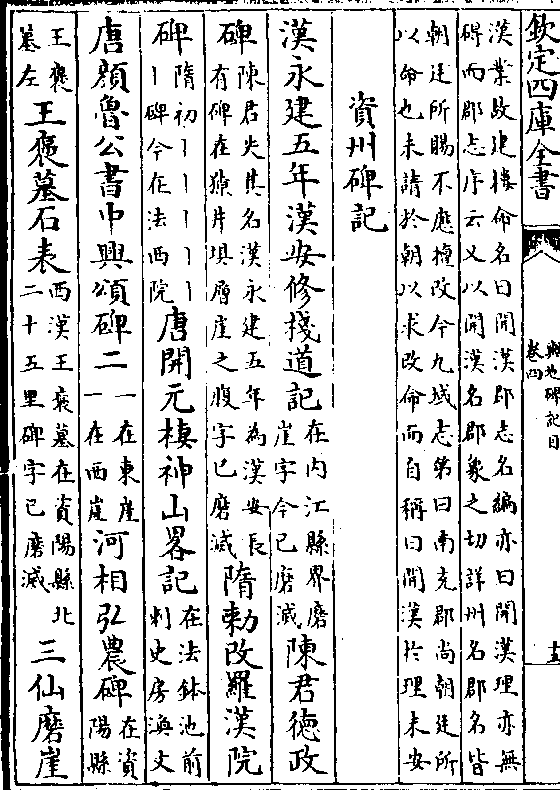 欽定四庫全書
輿地碑記目
卷四
十五
漢業故建樓命名曰開漢郡志名編亦曰開漢理亦無
碑而郡志序云又以開漢名郡象之切詳州名郡名皆
朝廷所賜不應擅改今九域志第曰南充郡尚朝廷所
以命也未請於朝以求改命而自稱曰開漢於理未安
資州碑記
漢永建五年漢安修棧道記在内江縣界磨崖字今已磨滅陳君德政
碑陳君失其名漢永建五年為漢安長有碑在㺍片垻層崖之腹字已磨滅隋勅改羅漢院
碑隋初丨丨丨丨丨丨碑今在法西院唐開元棲神山畧記在法鉢池前刺史房渙文
唐顔魯公書中興頌碑二一在東崖一在西崖河相弘農碑在資陽縣
王褒墓左王褒墓石表西漢王褒墓在資陽縣北二十五里碑字已磨滅三仙磨崖